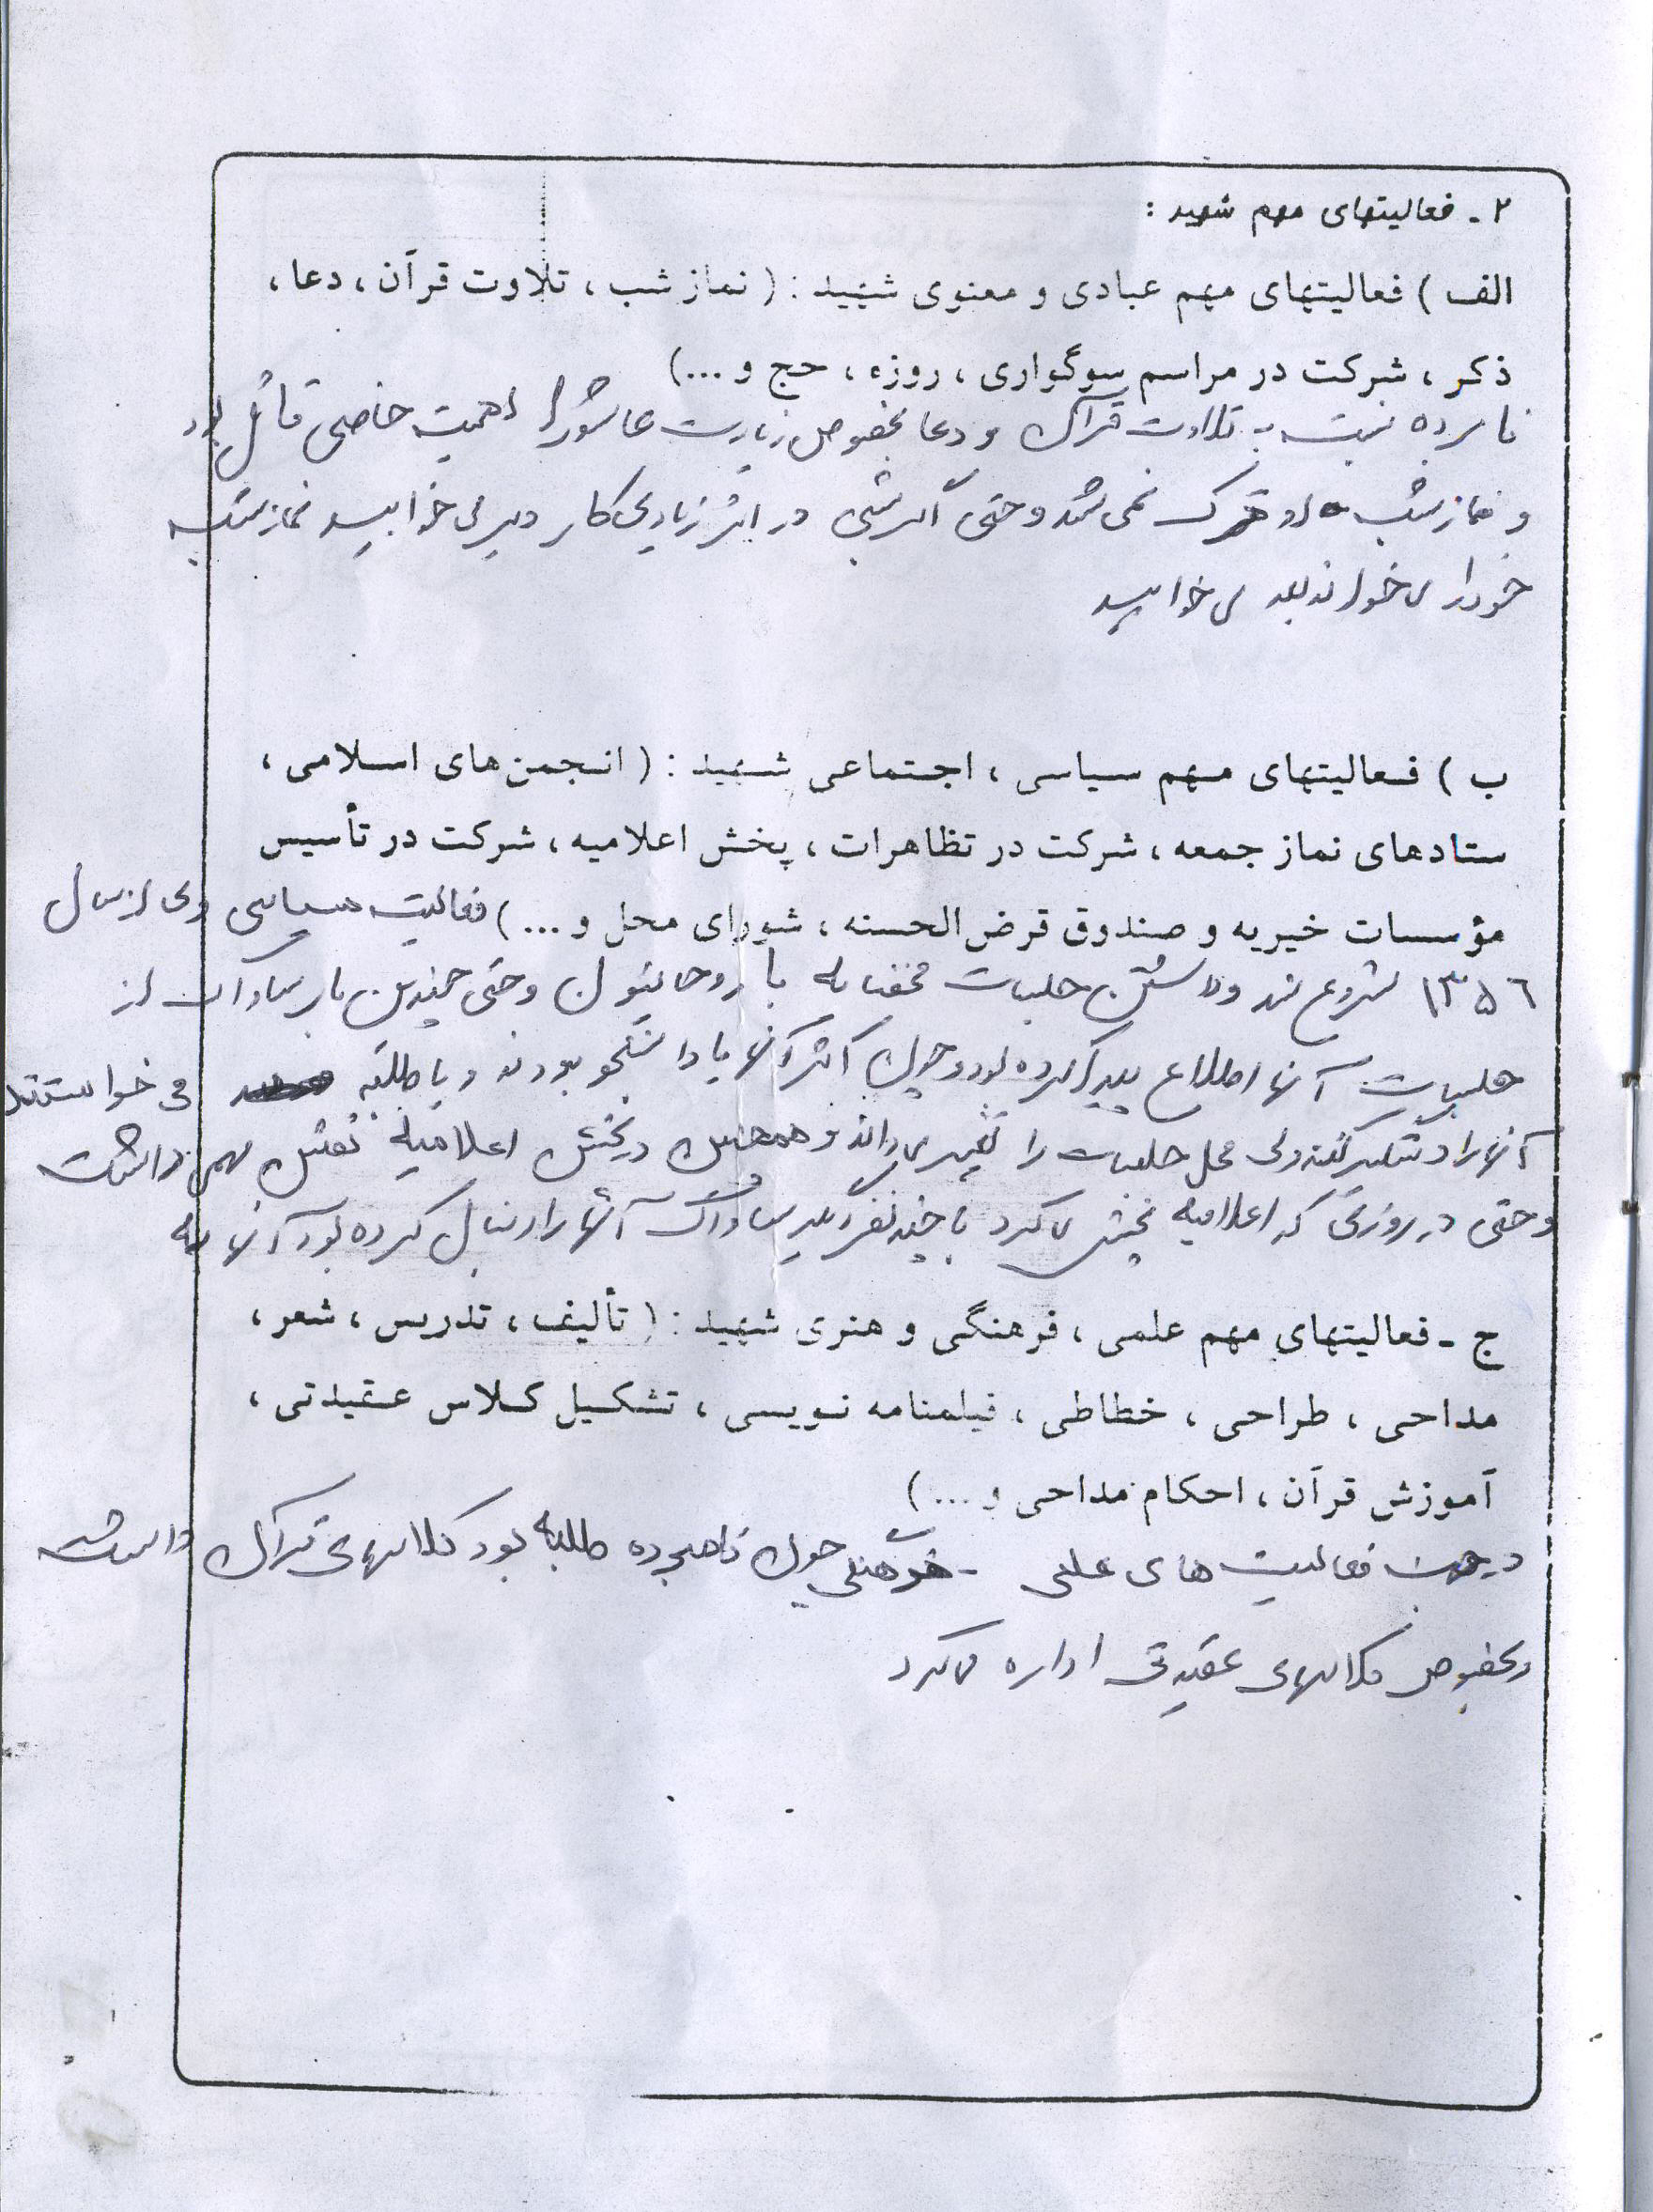 ۲ - فعالیتهای مهم شهید :
الف ) فعالیتهای مهم عبادی و معنوی شهید : ( نماز شب ، تلاوت قرآن ، دعا ،
ذکر ، شرکت در مراسم سوگواری ، روزه ، حج و ...)
نامبرده نسبت به تلاوت قرآن و دعا بخصوص زیارت عاشورا اهمیت خاصی قائل بود
و نماز شب او ترک نمی شد و حتی اگر شبی در اثر زیادی کار دیر می خوابید نماز شب
خود را می خواند بعد می خوابید
ب ) فعالیتهای مهم سیاسی ، اجتماعی شهید : ( انجمن های اسلامی ،
ستادهای نماز جمعه ، شرکت در تظاهرات ، پخش اعلامیه ، شرکت در تأسیس
مؤسسات خیریه و صندوق قرض الحسنه ، شورای محل و ... ) فعالیت سیاسی وی از سال
۱۳۵۶ شروع شد و داشتن جلسات مخفیانه با روحانیون و حتی چندین بار ساواک از
جلسات آنها اطلاع پیدا کرده بود و چون اکثر آنها یا دانشجو بودند و یا طلبه می خواستند
آنها را دستگیر کنند ولی محل جلسات را تغییر می دادند و همچنین در پخش اعلامیه نقش مهمی داشت
و حتی در روزی که اعلامیه پخش می کرد با چند نفر دیگر ساواک آنها را دنبال کرده بود آنها به
ج - فعالیتهای مهم علمی ، فرهنگی و هنری شهید : ( تألیف ، تدریس ، شعر ،
مداحی ، طراحی ، خطاطی ، فیلمنامه نویسی ، تشکیل کلاس عقیدتی ،
آموزش قرآن ، احکام مداحی و ... )
در جهت فعالیت های علمی - فرهنگی چون نامبرده طلبه بود کلاسهای قرآن داشت
و بخصوص کلاسهای عقیدتی اداره می کرد